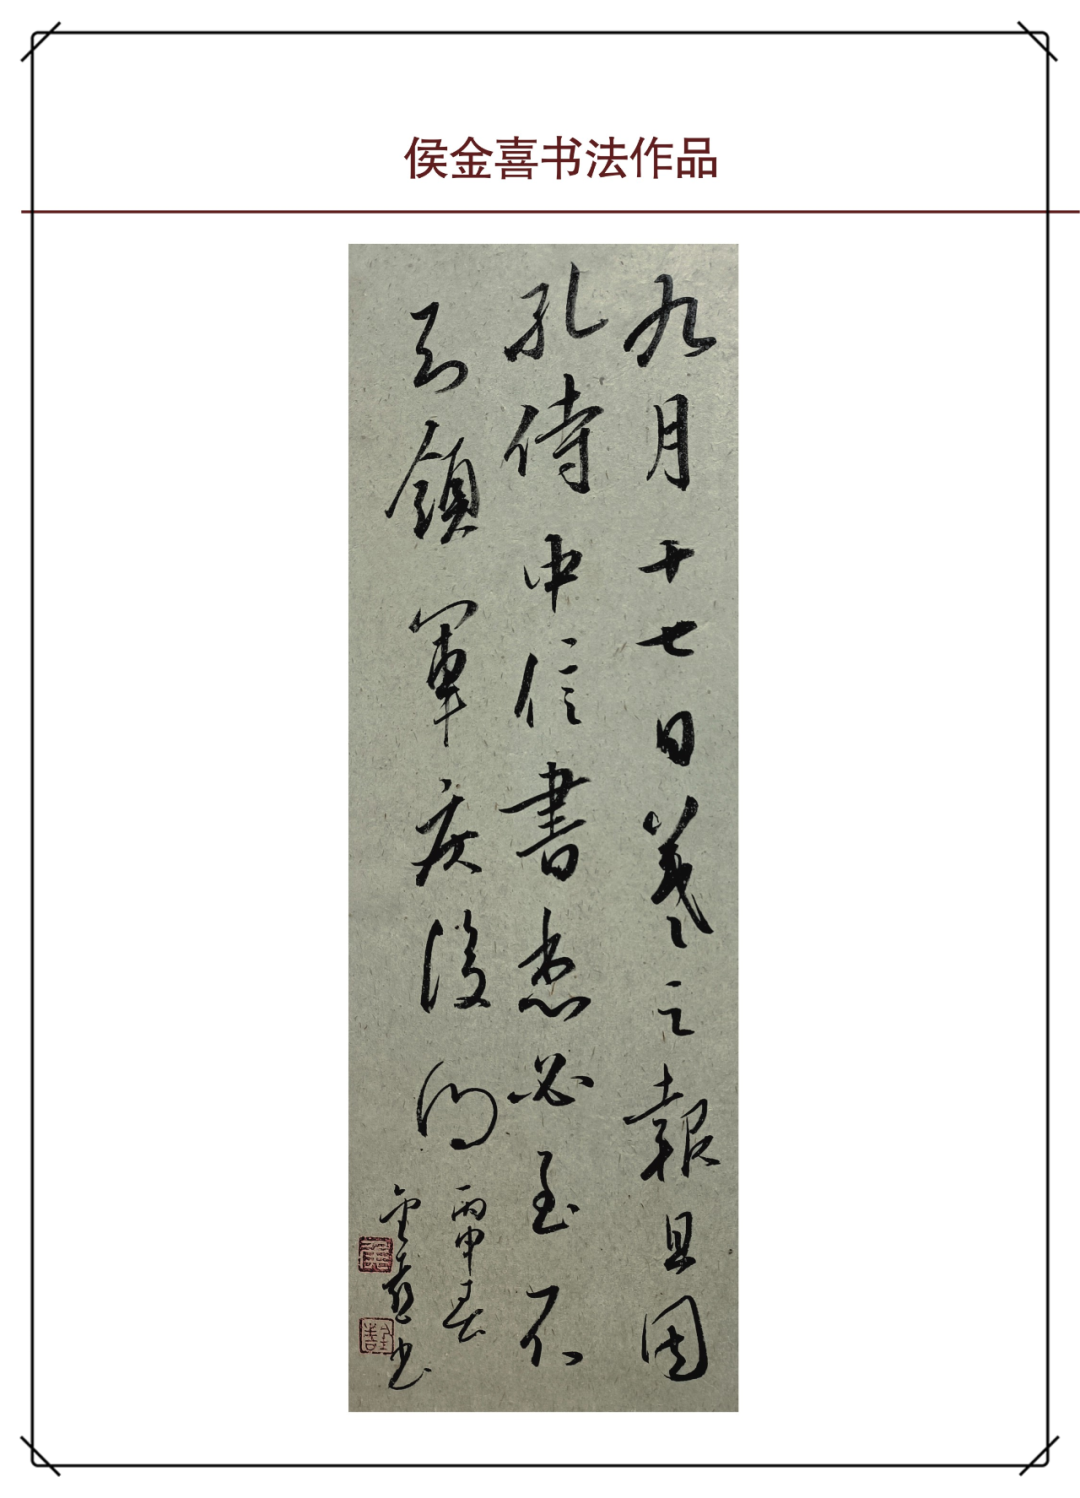 侯金喜书法作品
九月十七日羲之報且因
孔侍中信書想必至不
知領軍疾後問
丙申春
金喜书